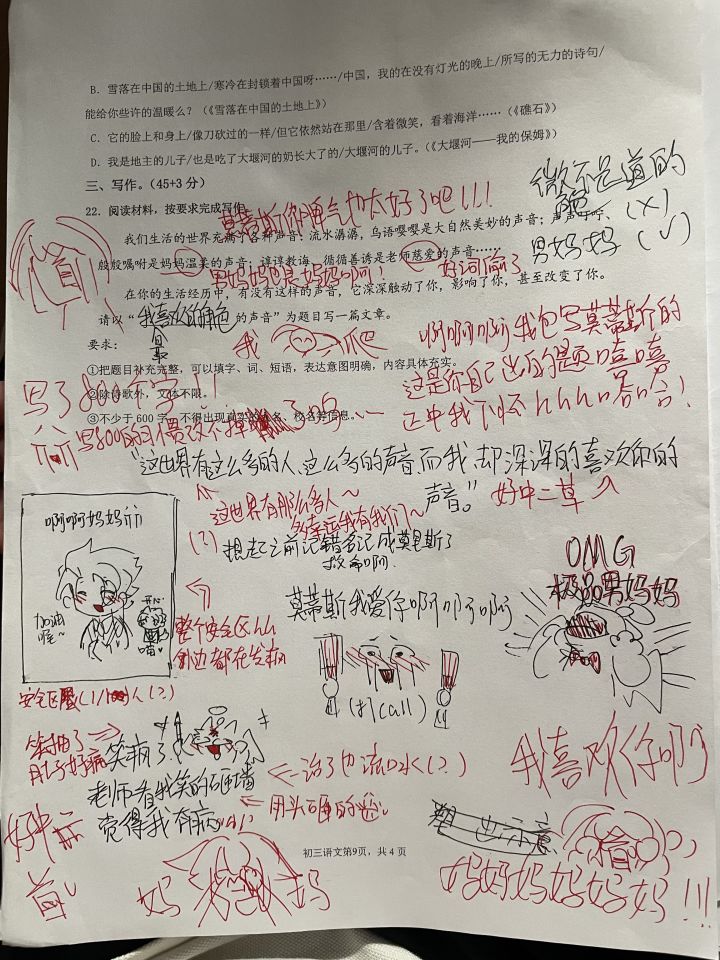 B．雪落在中国的土地上/寒冷在封锁着中国呀……/中国，我的在没有灯光的晚上/所写的无力的诗句/
能给你些许的温暖么？（《雪落在中国的土地上》）
C．它的脸上和身上/像刀砍过的一样/但它依然站在那里/含着微笑，看着海洋……（《礁石》）
D．我是地主的儿子/也是吃了大堰河的奶长大了的/大堰河的儿子。（《大堰河——我的保姆》）
三、写作。（45+3 分）
微不足道的
(×)
男妈妈 (√)
22．阅读材料，按要求完成写作。
莫蒂斯你脾气也太好了吧!!!
我们生活的世界充满了各种声音：流水潺潺，鸟语嘤嘤是大自然美妙的声音；声声叮咛、
殷殷嘱咐是妈妈温柔的声音；谆谆教诲、循循善诱是老师慈爱的声音……
男妈妈也是妈妈啊！
好词
在你的生活经历中，有没有这样的声音，它深深触动了你，影响了你，甚至改变了你。
请以“我喜欢的角色的声音”为题目写一篇文章。
最
要求：
我 爬
啊啊啊啊我包写莫蒂斯的
这是你自己出的题嘻嘻
正中我下怀hhhh哈哈！
①把题目补充完整，可以填字、词、短语，表达意图明确，内容具体充实。
②除诗歌外，文体不限。
③不少于 600 字，不得出现真实的姓名、校名等信息。
写了800个字!!
写800的习惯改不掉了呜……
“这世界有这么多的人，这么多的声音而我却深深的喜欢你的
声音。”
好中二草
这世界有那么多人~
多幸运我有我们~
(?)
想起之前记错名记成莫里斯了
救命啊
啊啊妈妈
加油
喔~
开心
喵
整个安全区hh
别边都在发病
莫蒂斯我爱你啊啊啊
(打call)
OMG
极品男妈妈
笑抽了
肚子好痛
笑疯了
老师看我笑的砸墙
觉得我有病
治了也流口水(?)
用头砸的
我喜欢你啊
初三语文第9页，共 4 页
妈 妈
妈妈妈妈妈妈!!!